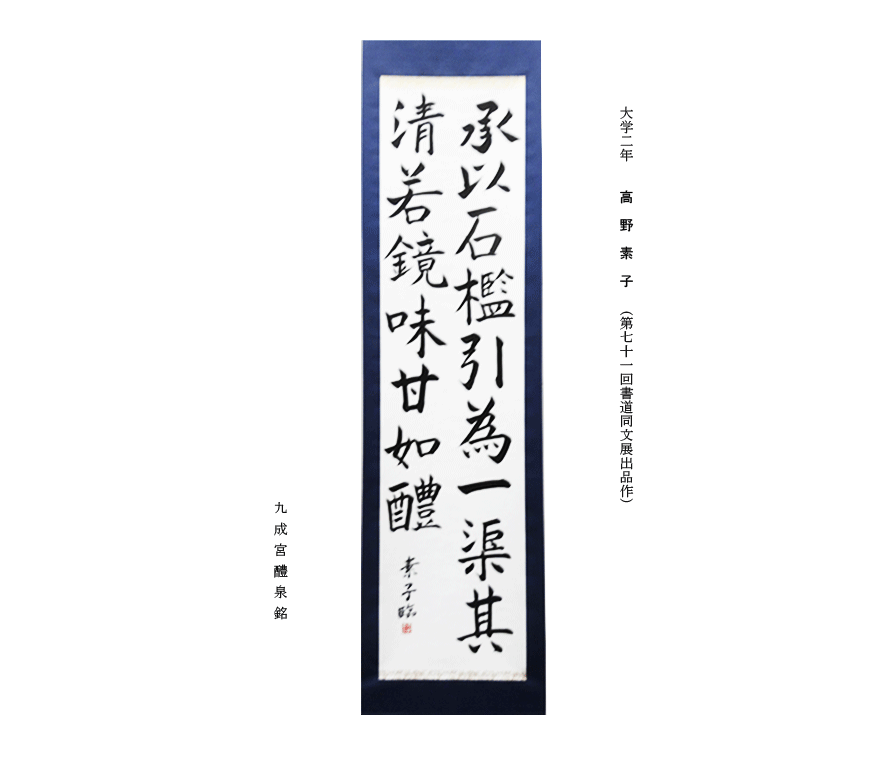 大学二年　高野素子　（第七十一回書道同文展出品作）
承以石檻引為一渠其
清若鏡味甘如醴
素子臨
九成宮醴泉銘